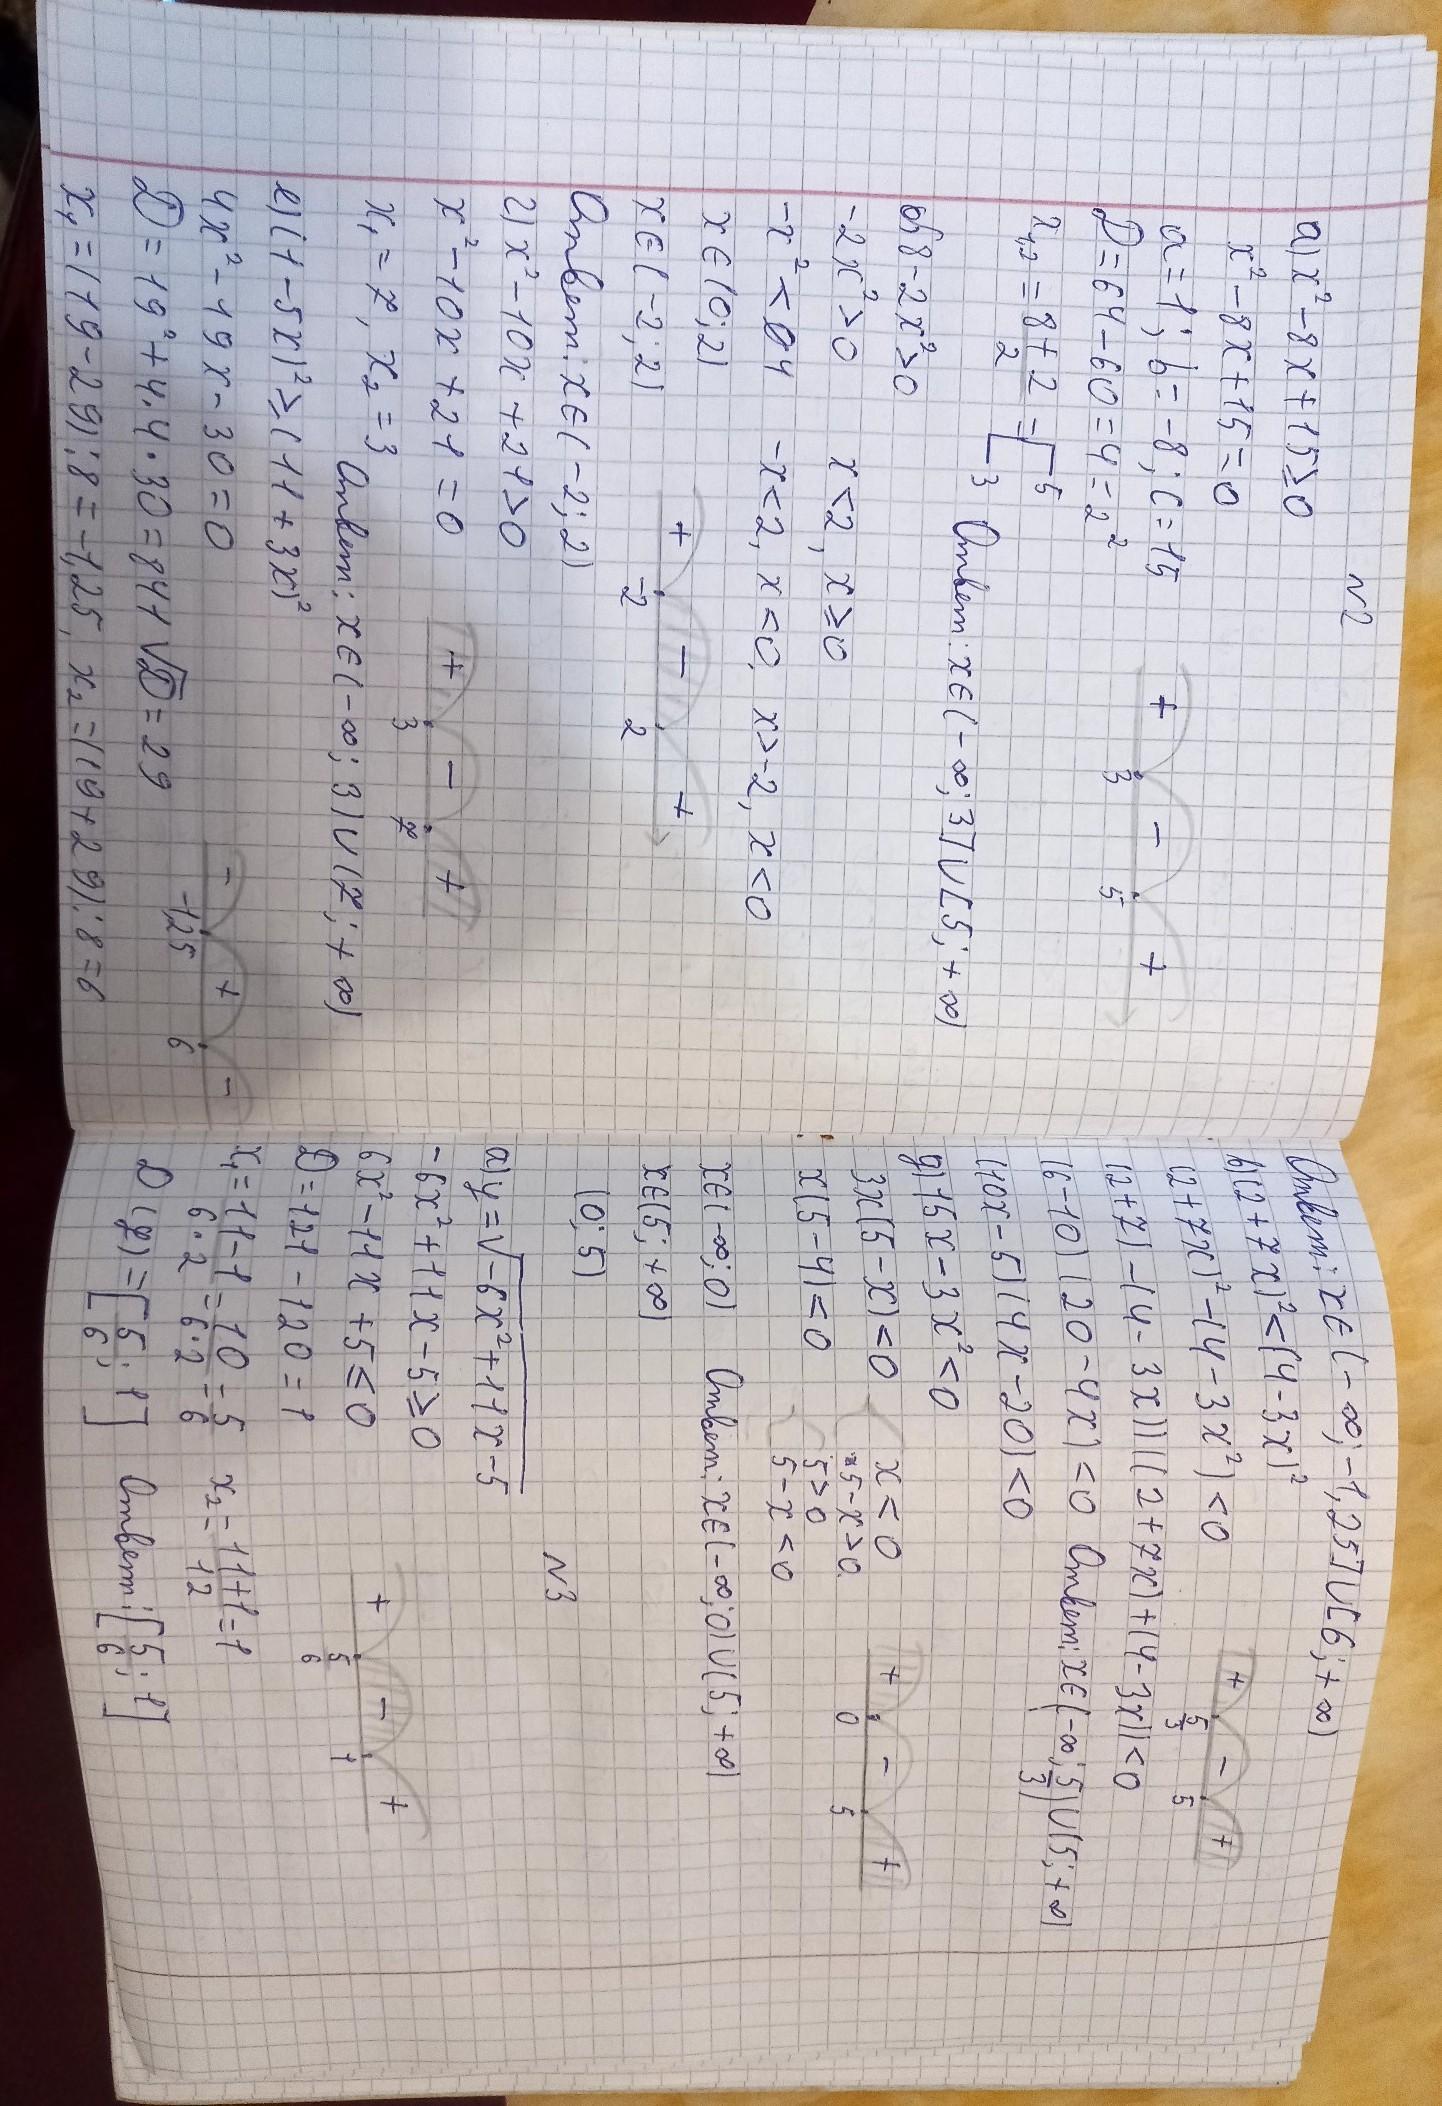 N2
а) x²-8x+15≥0
x²-8x+15=0
a=1; b=-8; c=15
D=64-60=4=2²
x₁,₂=8+2/2=[5 3
+ 3 - 5 +
Ответ: x∈(-∞;3]∪[5;+∞)
б) 8-2x²>0
-2x²>0 x<2, x≥0
-x²<04 -x<2, x<0, x>-2, x<0
x∈(0;2)
x∈(-2;2)
+ -2 - 2 +
Ответ: x∈(-2;2)
г) x²-10x+21>0
x²-10x+21=0
x₁=7, x₂=3
+ 3 - 7 +
Ответ: x∈(-∞;3)∪(7;+∞)
е) (1-5x)²≥(11+3x)²
4x²-19x-30=0
D=19²+4·4·30=841 √D=29
- -1,25 + 6 -
x₁=(19-29):8=-1,25, x₂=(19+29):8=6
Ответ: x∈(-∞;-1,25]∪[6;+∞)
в) (2+7x)²<(4-3x)²
(2+7x)²-(4-3x²)<0
+ 5/3 - 5 +
(2+7)-(4-3x))((2+7x)+(4-3x))<0
(6-10)(20-4x)<0 Ответ: x∈(-∞;5/3)∪(5;+∞)
(10x-5)(4x-20)<0
д) 15x-3x²<0
3x(5-x)<0 x<0
5-x>0
x(5-4)=0 5>0
5-x<0
+ 0 - 5 +
x∈(-∞;0) Ответ: x∈(-∞;0)∪(5;+∞)
x∈(5;+∞)
(0;5)
N3
а) y=√-6x²+11x-5
-6x²+11x-5≥0
6x²-11x+5≤0
+ 5/6 - 1 +
D=121-120=1
x₁=11-1/6·2=10/6·2=5/6 x₂=11+1/12=1
D(y)=[5/6;1] Ответ: [5/6;1]